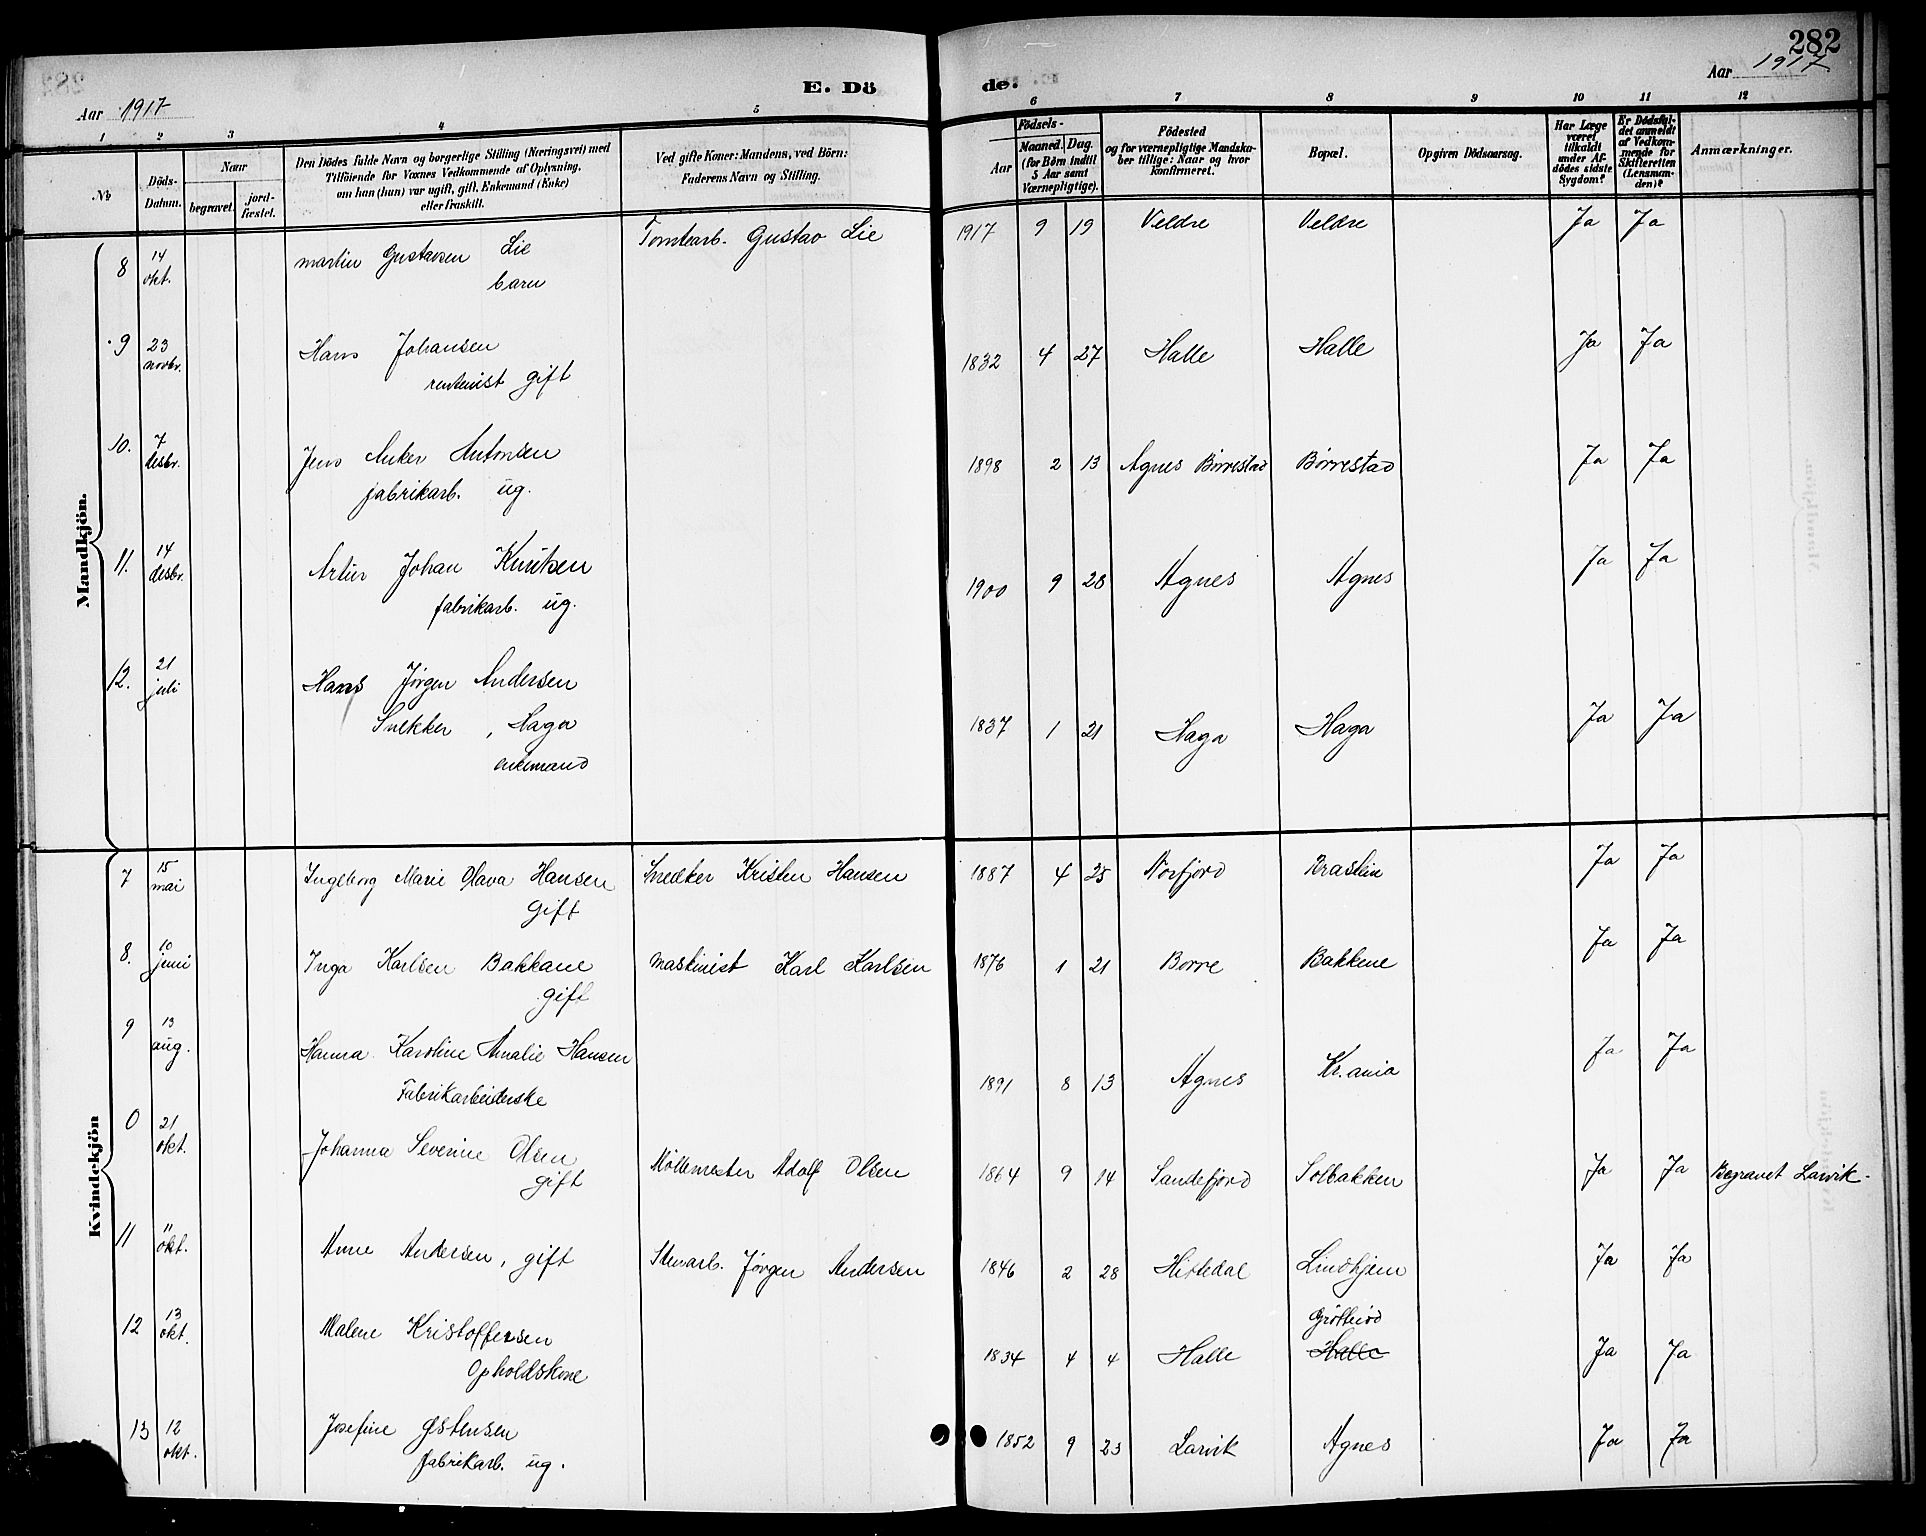 282
Aar 1917
E. Dö
de.
Aar 1917
1 2 3 4 5 6 7 8 9 10 11 12
No
Döds-Datum.
Naar
begravet.
jord-fæstet.
Den Dödes fulde Navn og borgerlige Stilling (Næringsvei) med
Tilföiende for Voxnes Vedkommende af Oplysning,
om han (hun) var ugift, gift, Enkemand (Enke)
eller fraskilt.
Ved gifte Koner: Mandens, ved Börn:
Faderens Navn og Stilling.
Födsels-
Aar
Maaned. Dag.
(for Börn indtil
5 Aar samt
Værnepligtige).
Födested
og for værnepligtige Mandska-
ber tillige: Naar og hvor
konfirmeret.
Bopæl.
Opgiven Dödsaarsag.
Har Læge
været
tilkaldt
under Af-
dödes sidste
Sygdom?
Er Dödsfal-
det anmeldt
af Vedkom-
mende for
Skifteretten
(Lensman-
den)?
Anmærkninger.
Mandkjön.
8 14 okt. Martin Gustavsen Lie Tomtearb. Gustav Lie 1917 9 19 Veldre Veldre Ja Ja
barn
9 23 novbr. Hans Johansen 1832 4 27 Halle Halle Ja Ja
rentenist gift
10. 7 desbr. Jens Anker Antonsen 1898 2 13 Agnes Börrestad Börrestad Ja Ja
fabrikarb. ug.
11. 14 desbr. Artur Johan Knutsen 1900 9 28 Agnes Agnes Ja Ja
fabrikarb. ug.
12. 21 juli Hans Jörgen Andersen
Snekker, Haga 1837 1 21 Haga Haga Ja Ja
enkemand
Kvindekjön
7 15 mai Ingeborg Marie Olava Hansen Snedker Kristen Hansen 1887 4 25 Norfjord Ja Ja
gift
8. 10 juni Inga Karlsen Bakkane maskinist Karl Karlsen 1876 1 21 Borre Bakkene Ja Ja
gift
9 13 aug. Hanna Karoline Amalie Hansen 1891 8 13 Agnes Kr.ania Ja Ja
Fabrikarbeiderske
0 21 okt. Johanna Severine Olsen Möllemester Adolf Olsen 1864 9 14 Sandefjord Solbakken Ja Ja Begravet Larvik.
gift
11 11 okt. Anne Andersen, gift Stenarb. Jörgen Andersen 1846 2 28 Hittedal Lindhjem Ja Ja
12 13 okt. Malene Kristoffersen 1834 4 4 Halle Grötteröd Halle Ja Ja
Opholdskone
13 12 okt. Josefine Östensen 1852 9 23 Larvik Agnes Ja Ja
fabrikarb. ug.